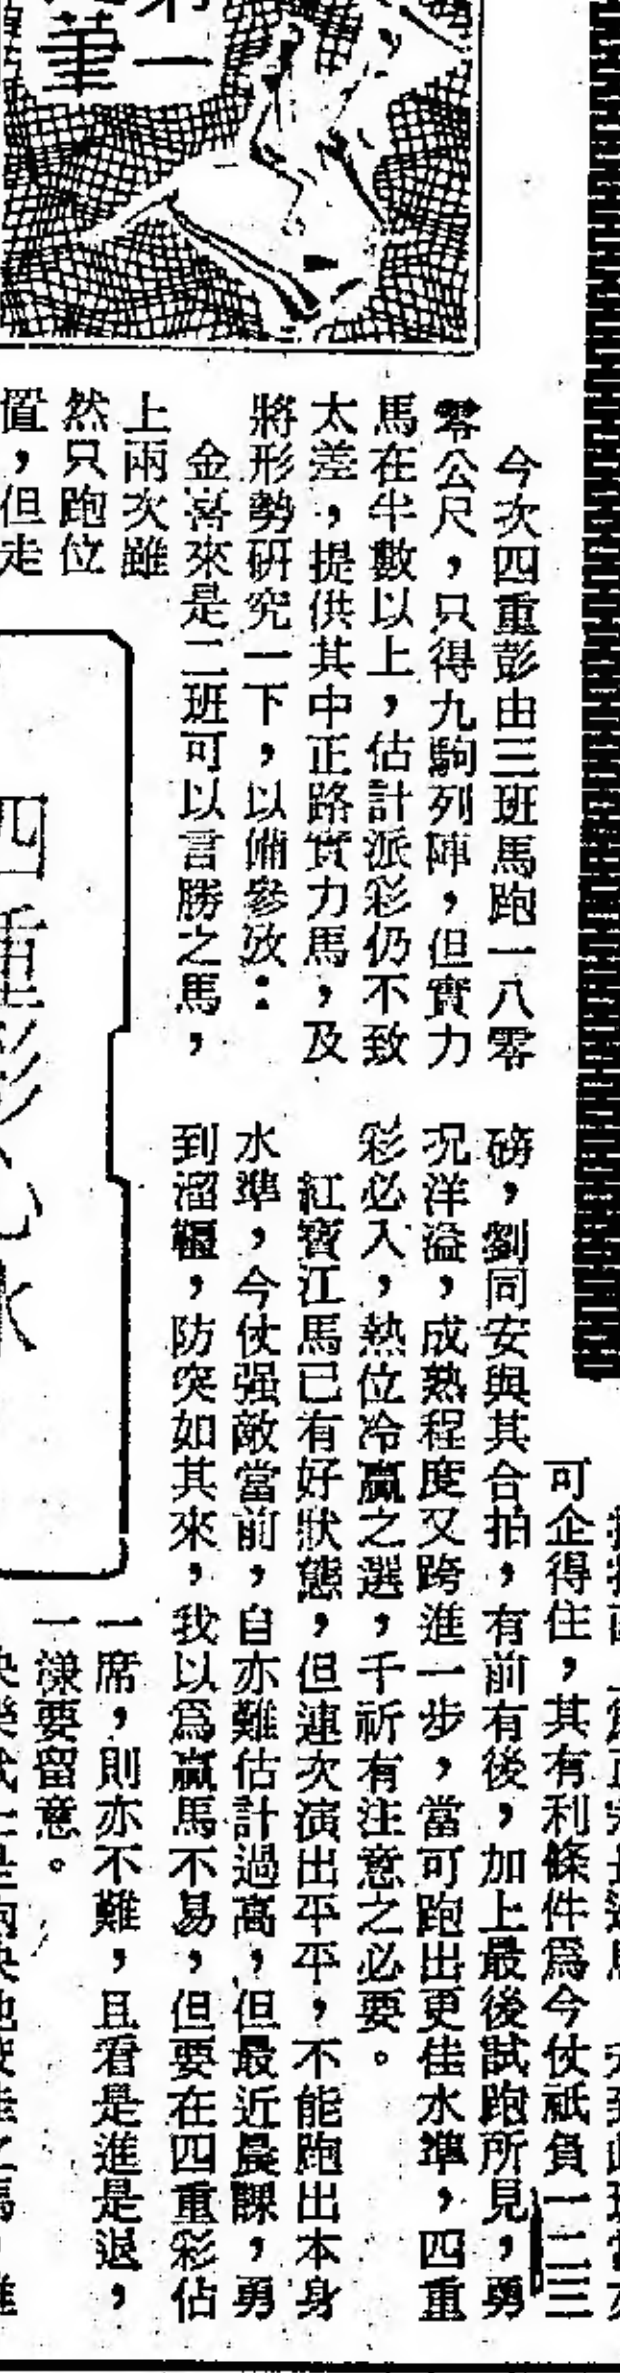 第一
筆
今次四重彭由三班馬跑一八零
零公尺，只得九駒列陣，但實力
馬在半數以上，估計派彩仍不致
太差，提供其中正路實力馬，及
將形勢研究一下，以備參攷：
金喜來是二班可以言勝之馬，
上兩次雖
然只跑位
置，但走
四重彩心水
可企得住，其有利條件爲今仗祇負一二三
磅，劉同安與其合拍，有前有後，加上最後試跑所見，勇
况洋溢，成熟程度又跨進一步，當可跑出更佳水準，四重
彩必入，熱位冷贏之選，千祈有注意之必要。
紅寶江馬已有好狀態，但連次演出平平，不能跑出本身
水準，今仗强敵當前，自亦難估計過高，但最近晨課，勇
到溜韁，防突如其來，我以爲贏馬不易，但要在四重彩佔
一席，則亦不難，且看是進是退，
一漾要留意。